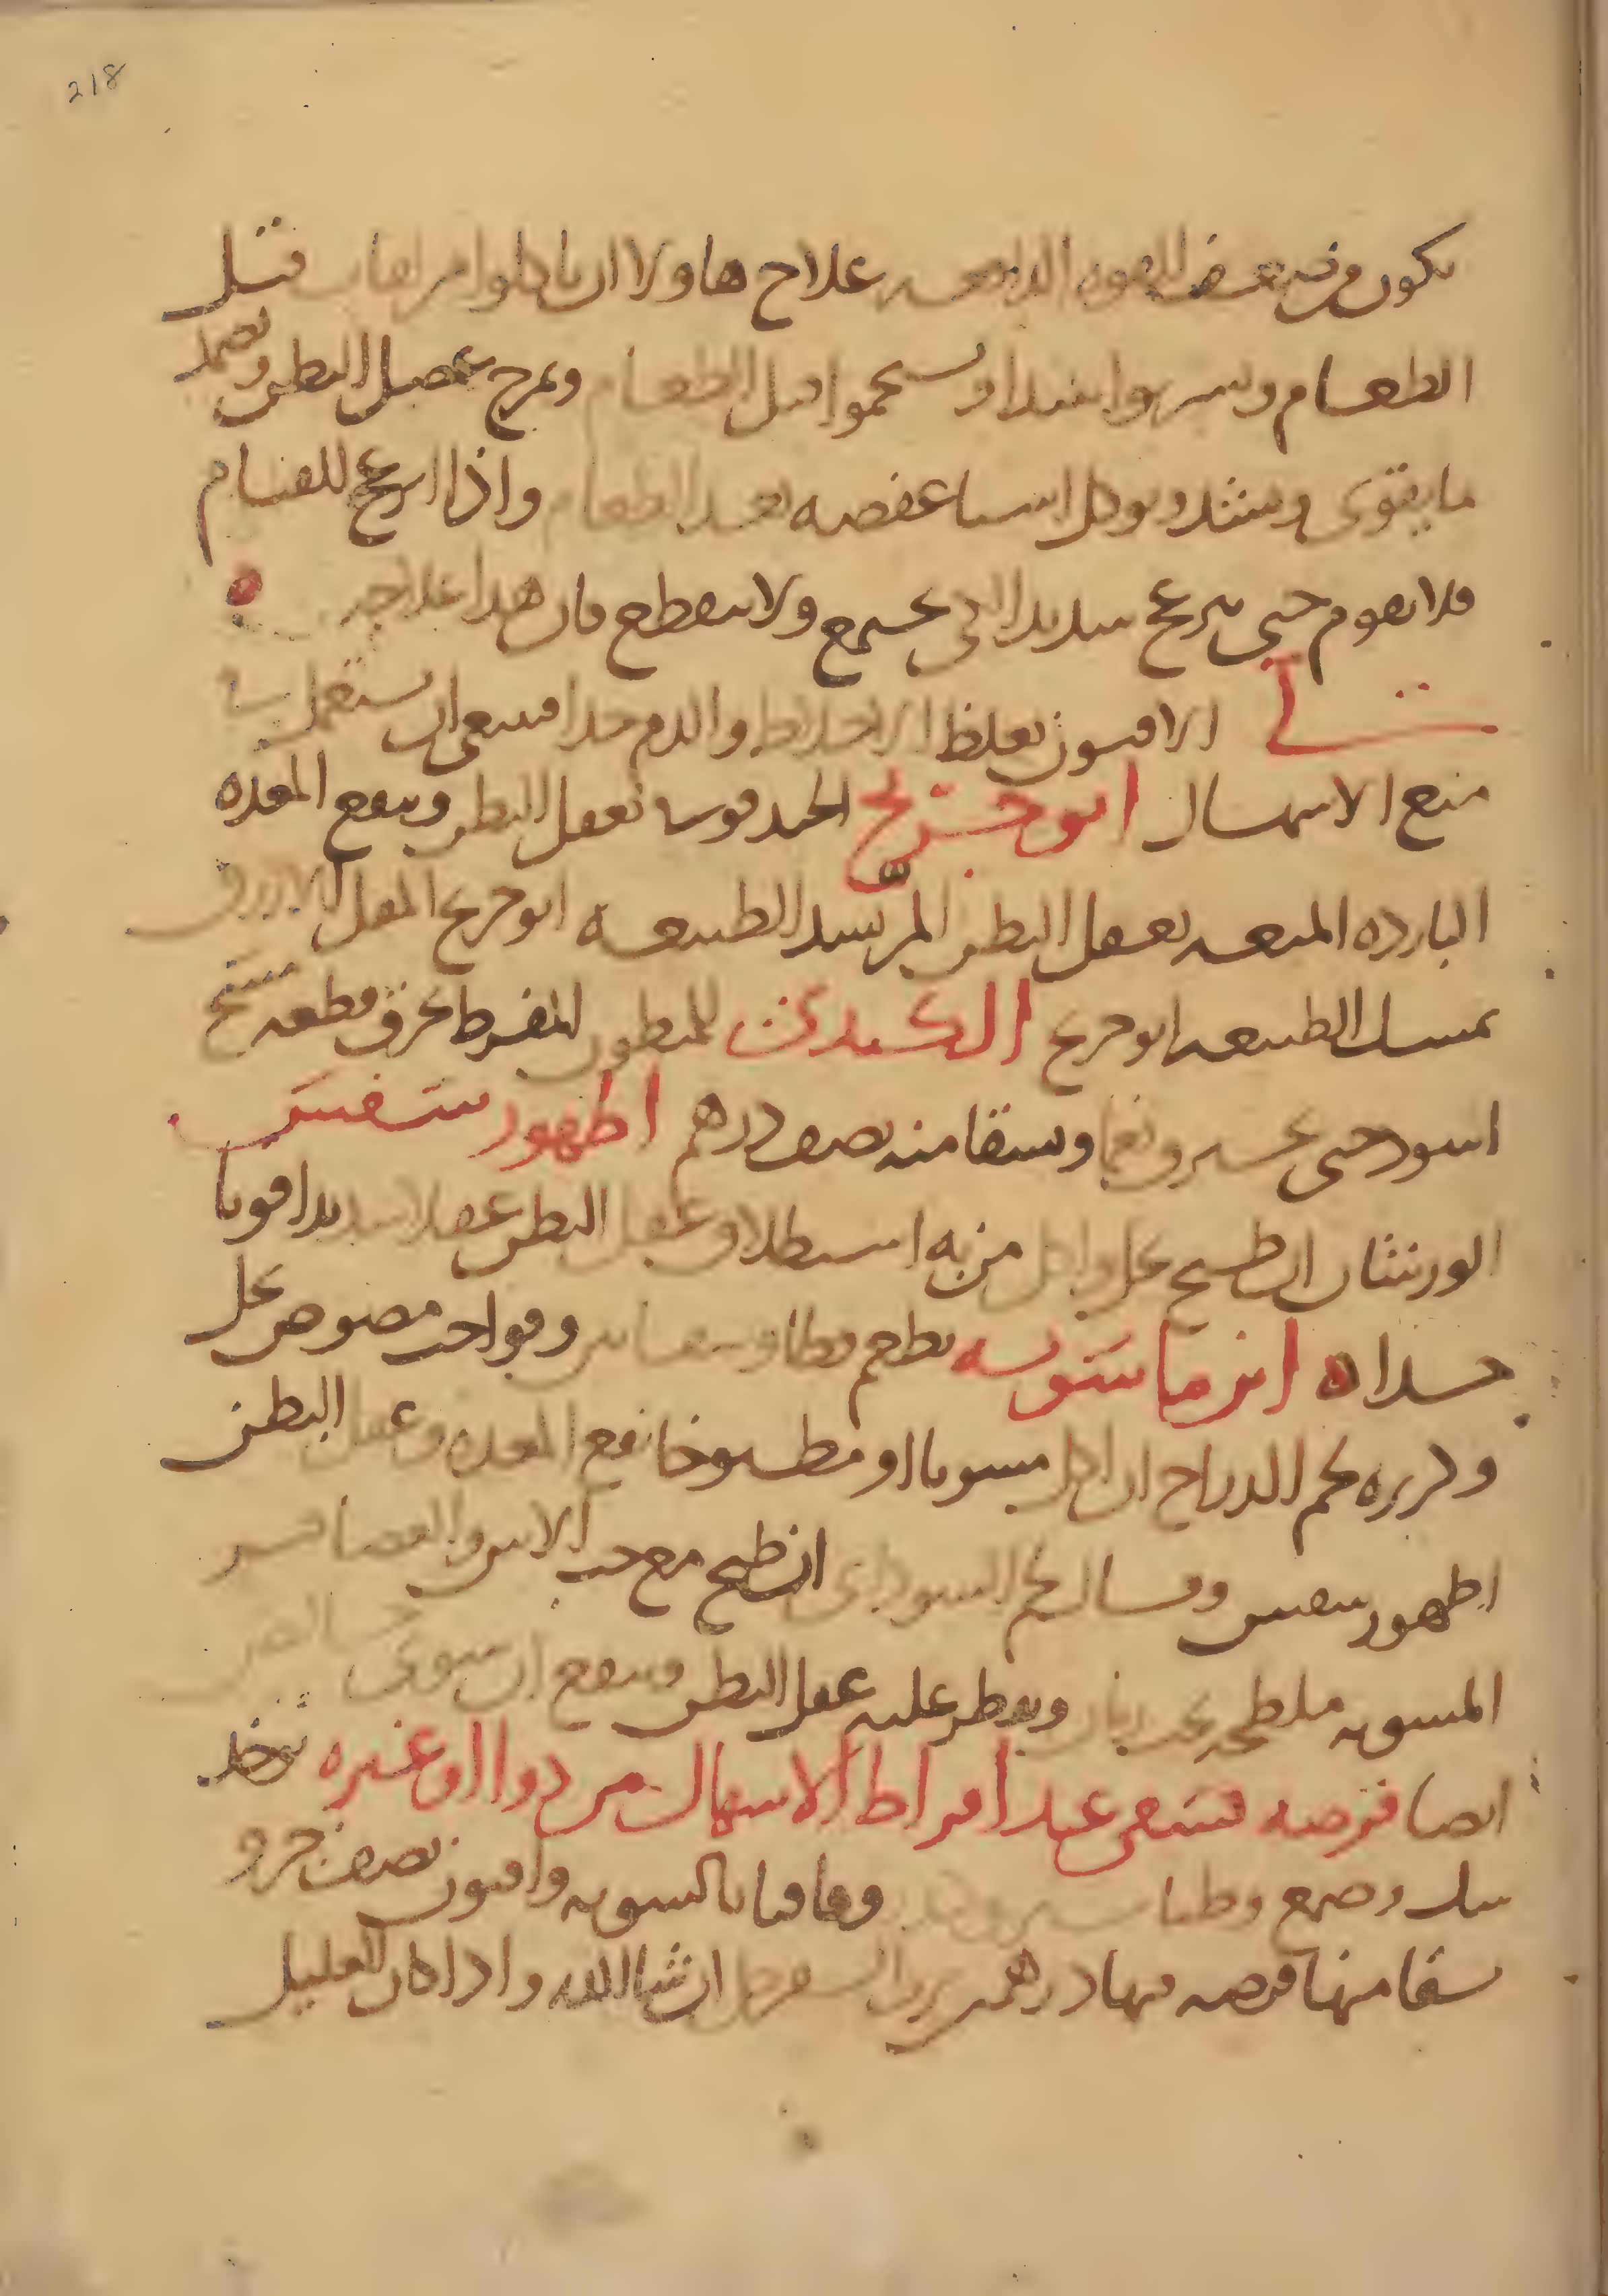 218
يكون من ضعف القوه الدافعه علاج هاولا ان ياكلوا مرا قبل
الطعام ويشربوا نبيذا ويستحموا قبل الطعام ويمرخ عضل البطن ويضمد
ما يقوى ويشد ويوكل اشيا عفصه بعد الطعام واذا ازعج للقيام
فلا يقوم حتى يزعج شديدا لكي يجتمع ولا ينقطع فان هذا علاجه
لي الافيون يغلظ الاخلاط والدم جدا فينبغي ان يستعمل
منع الاسهال ابو جريج الحندقوقا تعقل البطن وينفع المعده
البارده الميعه يعقل البطن المر يشد الطبيعه ابو جريج المقل الازرق
يمسك الطبيعه ابو جريج الكندي للمبطون المفرط يحرق قطعه مسح
اسود حتى يحترق نعما ويسقا منه نصف درهم اطهورسفس
الورشان ان طبخ بخل واكل من به استطلاق عقل البطن عقلا شديدا قويا
جدا ابن ماسويه يطعم قطا وشفانين وفواخت مصوص بخل
وكزبره لحم الدراج ان اكل مشويا او مطبوخا نفع المعده وعقل البطن
اطهورسفس وقال لحم السوداني ان طبخ مع حب الاس والعصافير
المشويه ملطخه ويقطر عليه عقل البطن وينفع ان شوي
ايضا قرصه تسقى عند افراط الاسهال من دوا او غيره يوخذ
سك وصمغ وطباشير وقاقيا بالسويه وافيون نصف جزو
يسقا منها قرصه فيها درهم برب السفرجل ان شا الله واذا كان العليل